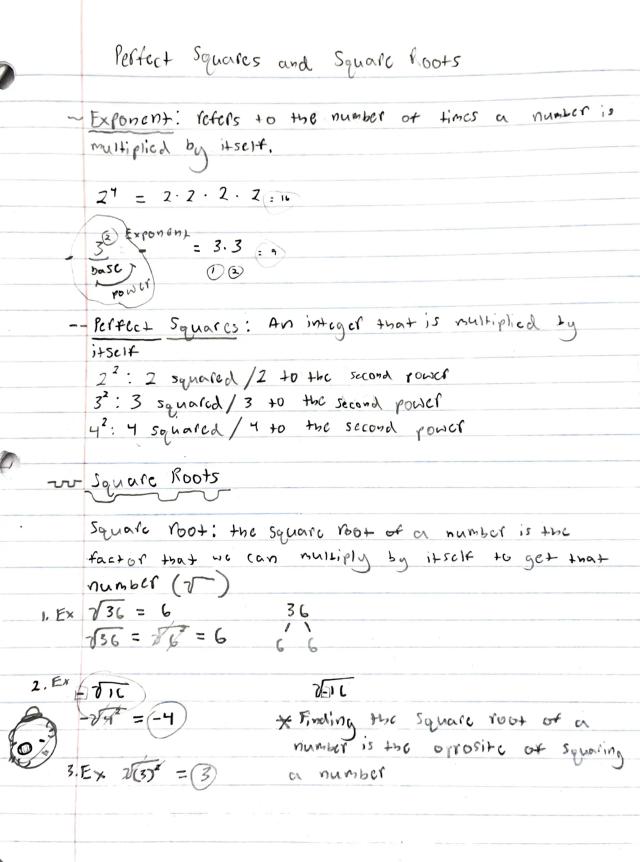 Perfect Squares and Square Roots
~ Exponent: refers to the number of times a number is
multiplied by itself.
2⁴ = 2·2·2·2 = 16
3² Exponent = 3.3 = 9
base ① ②
power
-- Perfect Squares: An integer that is multiplied by
itself
2²: 2 squared/2 to the second power
3²: 3 squared/3 to the second power
4²: 4 squared/4 to the second power
Square Roots
Square root: the square root of a number is the
factor that we can multiply by itself to get that
number (√)
1. Ex √36 = 6 36
√36 = √6² = 6 6 6
2. Ex -√16 √-16
-√4² = -4 * Finding the square root of a
number is the oprosite of squaring
3. Ex √(3)² = 3 a number